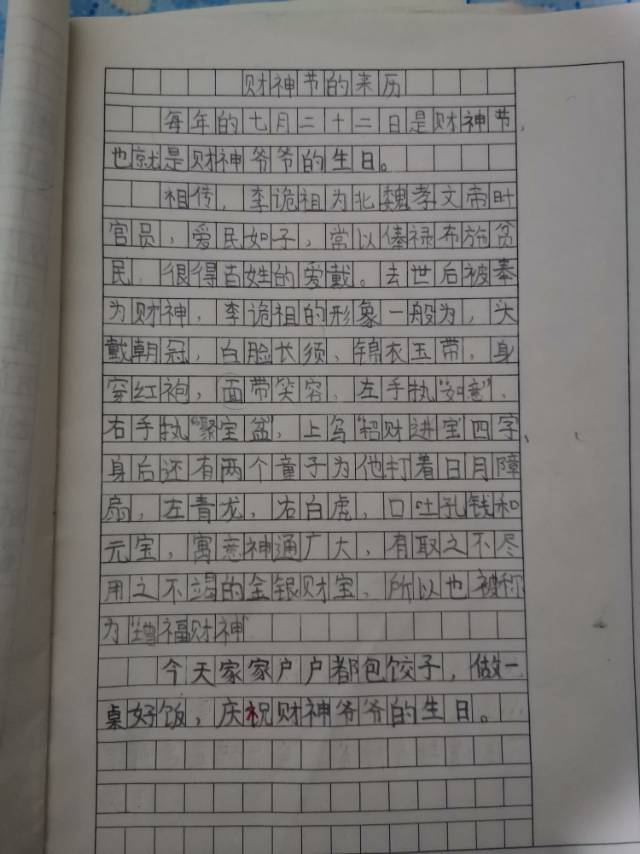 财神节的来历
每年的七月二十二日是财神节,
也就是财神爷爷的生日。
相传,李诡祖为北魏孝文帝时
官员,爱民如子,常以俸禄布施贫
民,很得百姓的爱戴。去世后被奉
为财神,李诡祖的形象一般为,头
戴朝冠,白脸长须,锦衣玉带,身
穿红袍,面带笑容,左手执"如意",
右手执"聚宝盆",上写"招财进宝"四字、
身后还有两个童子为他打着日月障
扇,左青龙,右白虎,口吐孔钱和
元宝,寓意神通广大,有取之不尽
用之不竭的金银财宝,所以也被称
为"增福财神"
今天家家户户都包饺子,做一
桌好饭,庆祝财神爷爷的生日。